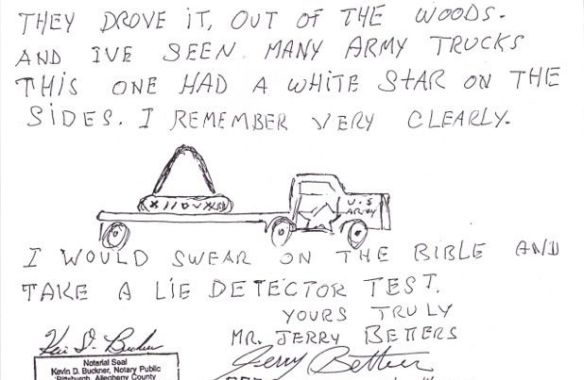 THEY DROVE IT, OUT OF THE WOODS.
AND IVE SEEN MANY ARMY TRUCKS
THIS ONE HAD A WHITE STAR ON THE
SIDES. I REMEMBER VERY CLEARLY.
U.S
ARMY
I WOULD SWEAR ON THE BIBLE AND
TAKE A LIE DETECTOR TEST.
YOURS TRULY
MR. JERRY BETTERS
Notarial Seal
Kevin D. Buckner, Notary Public
Pittsburgh, Allegheny County